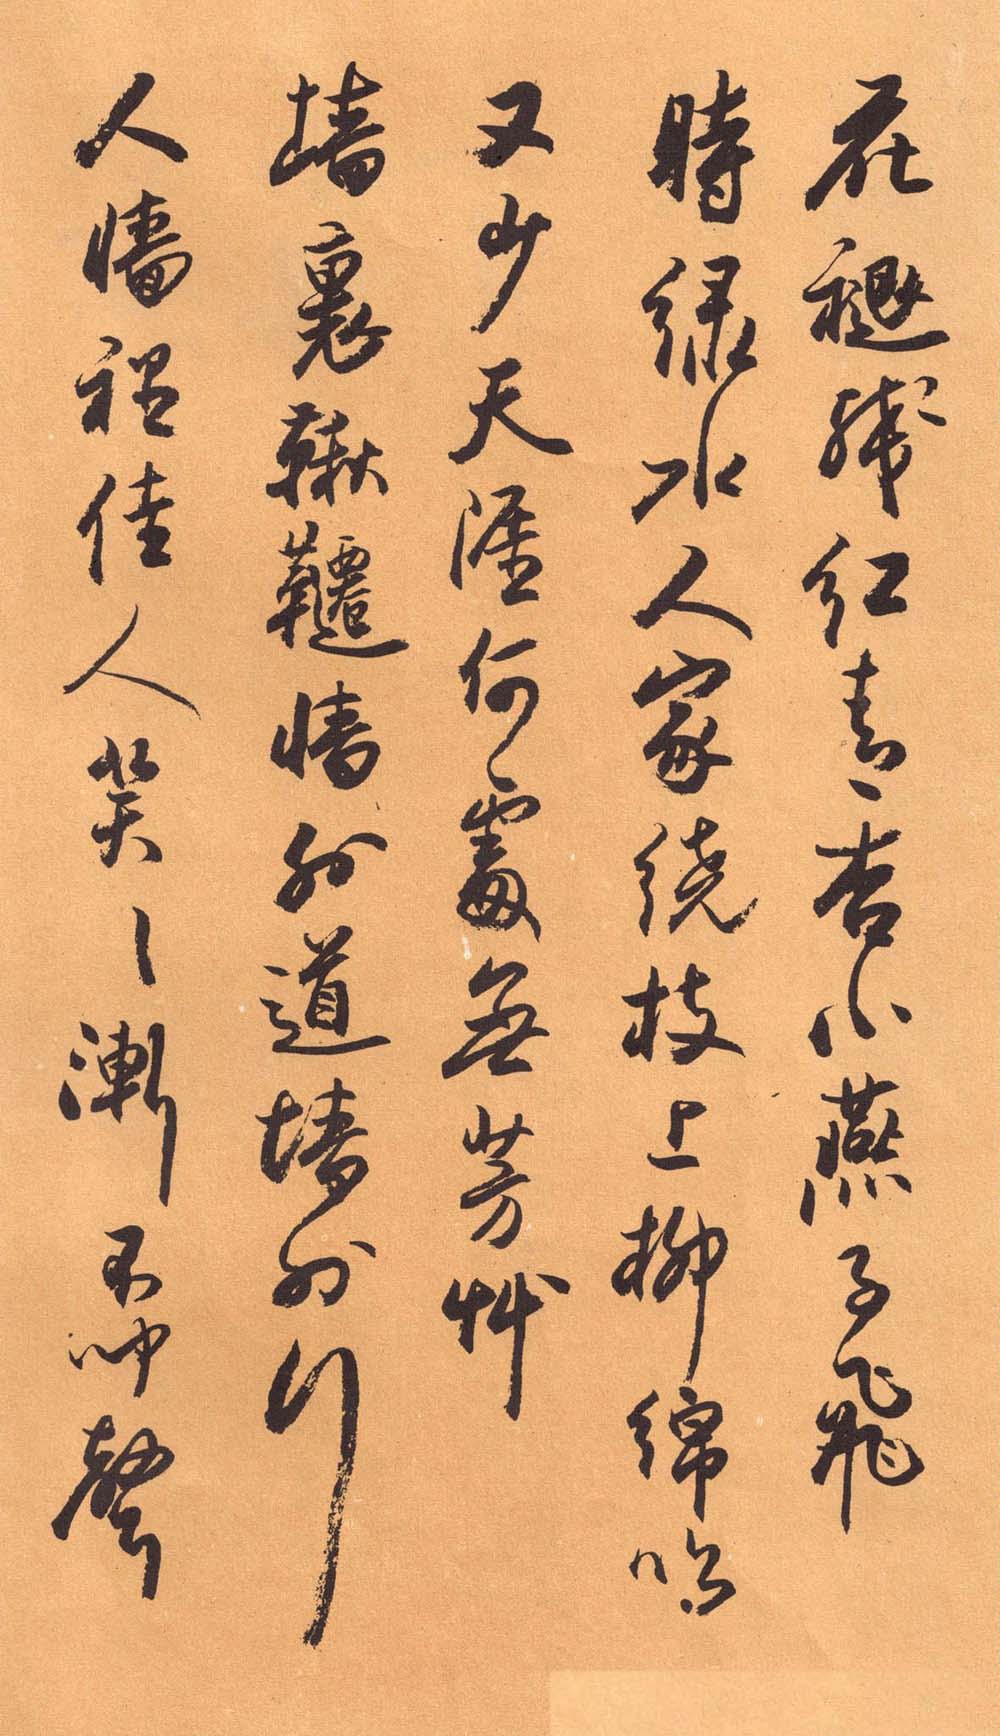 花褪殘紅青杏小燕子飛
時綠水人家繞枝上柳綿吹
又少天涯何處無芳艸
墻裏鞦韆墻外道墻外行
人墻裡佳人笑〻漸不聞聲